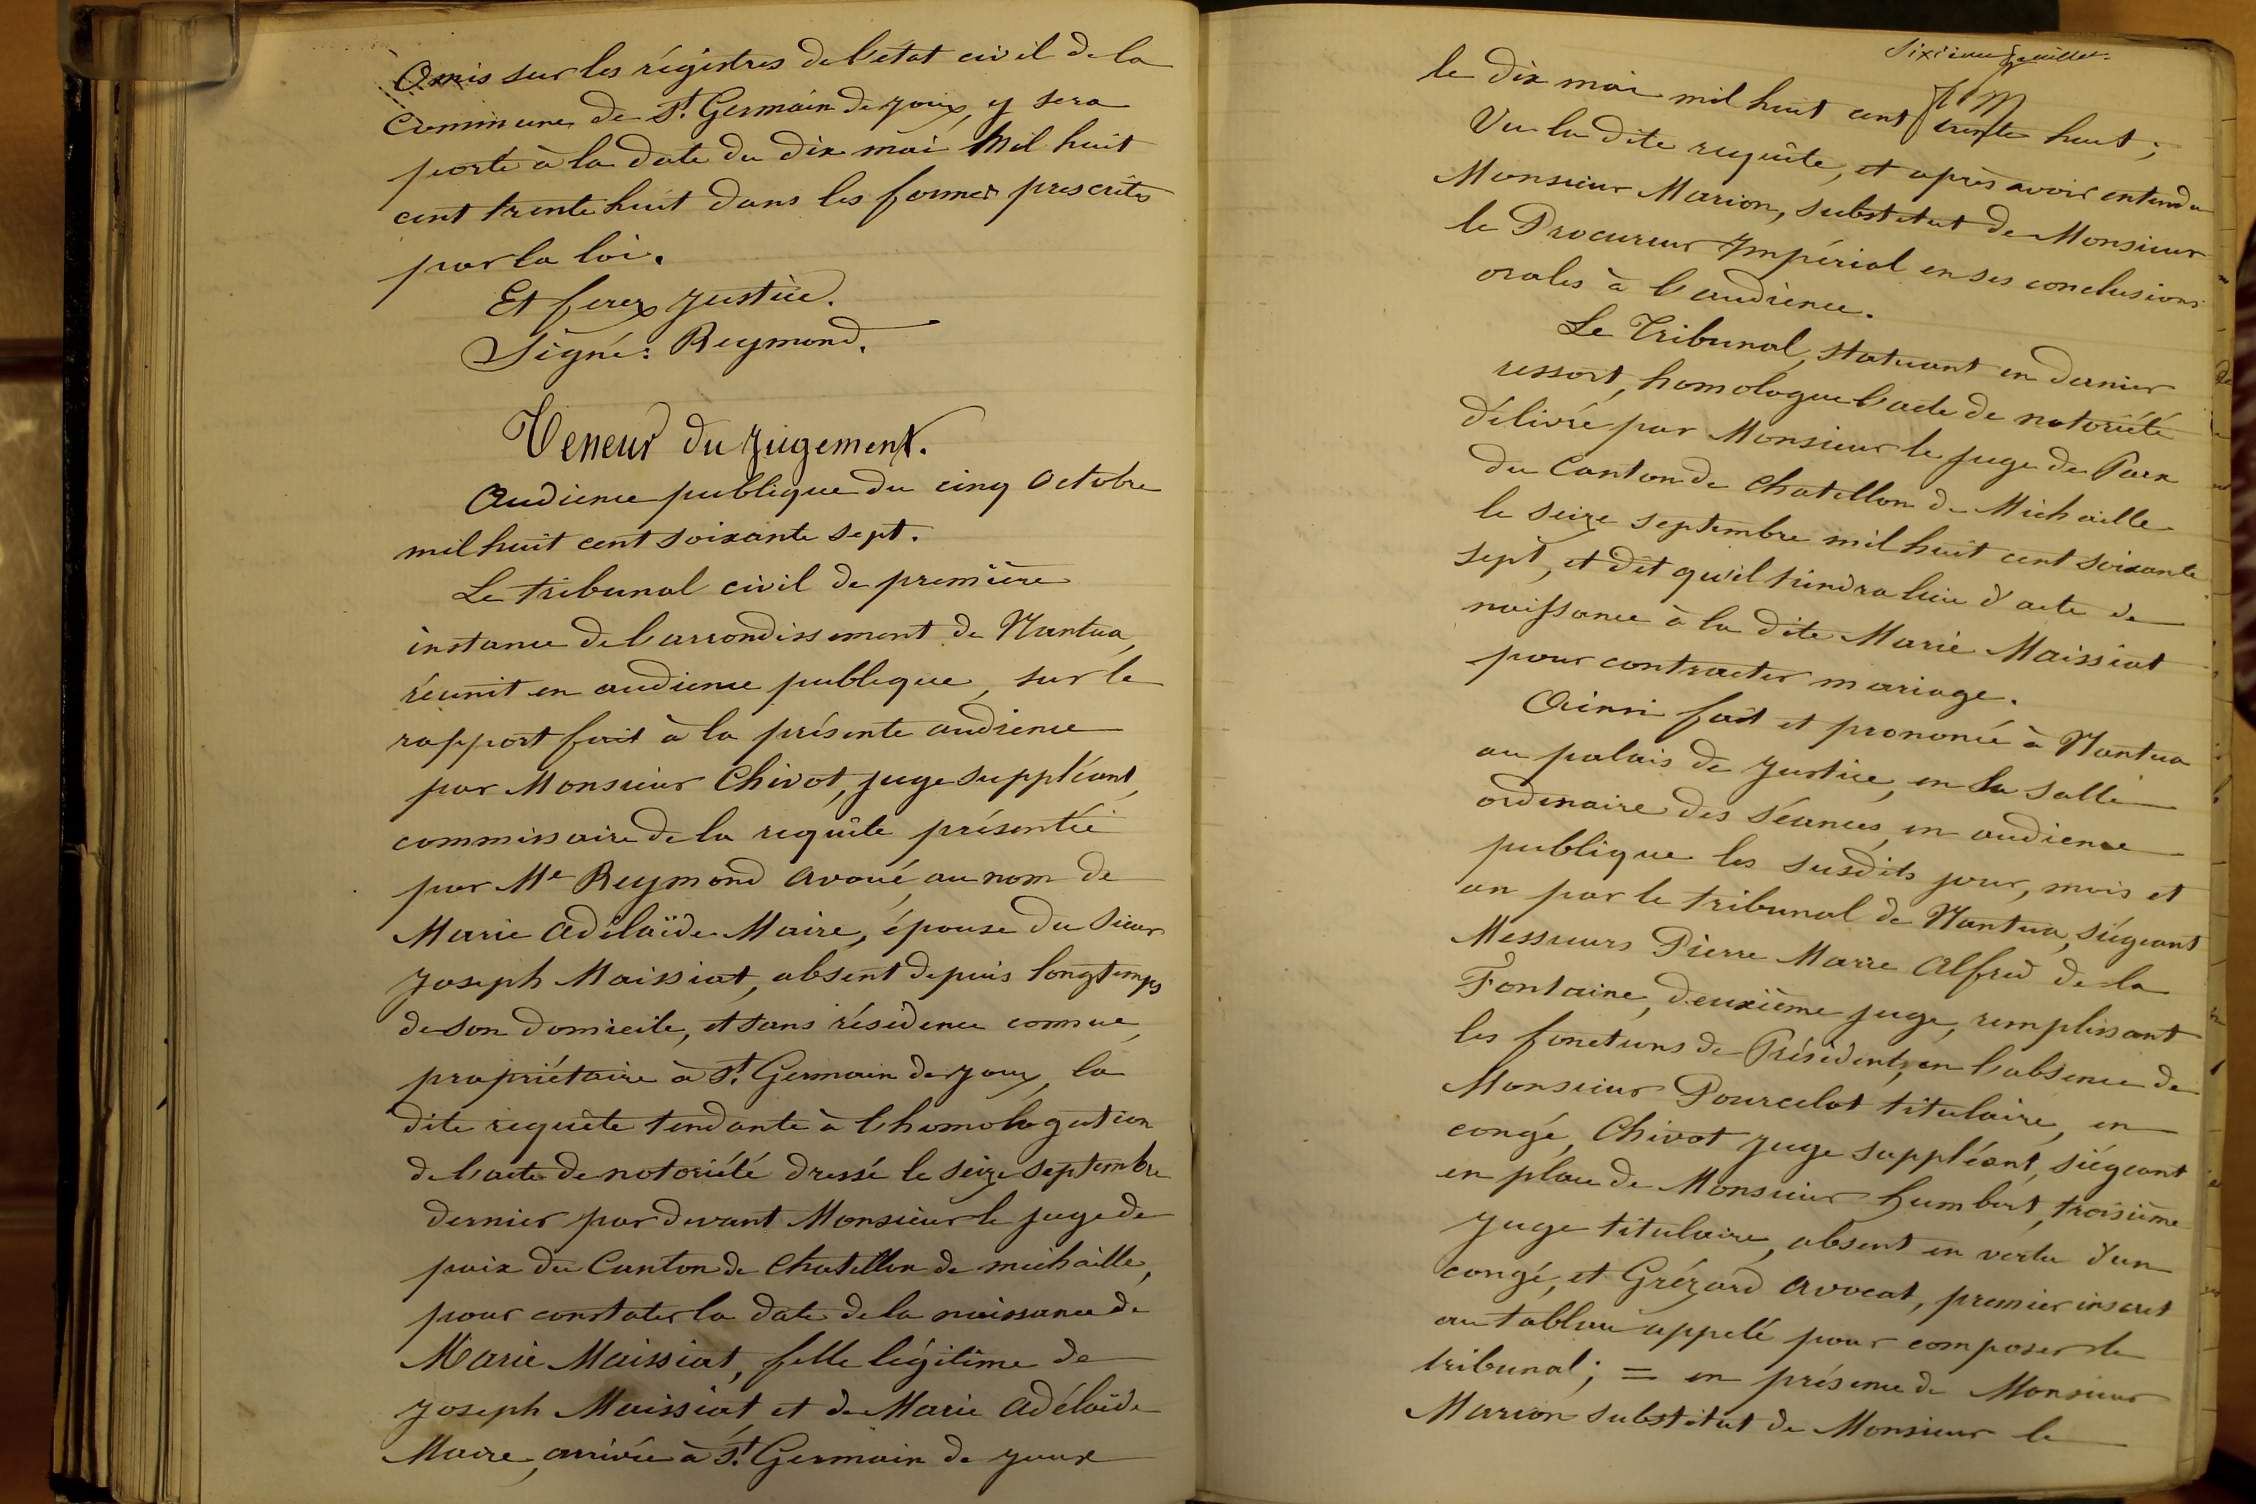 Omis sur les régistres de l'état civil de la
Commune de St. Germain de joux, y sera
porté à la date du dix mai Mil huit
cent trente huit dans les formes prescrites
par la loi.
Et ferez justice.
Signé: Reymond.
Teneur du jugement.
Audience publique du cinq Octobre
mil huit cent soixante sept.
Le tribunal civil de première
instance de l'arrondissement de Nantua,
réunit en audience publique, sur le
rapport fait à la présente audience
par Monsieur Chivot, juge suppléant,
commissaire de la requête présentée
par Me Reymond avoué, au nom de
Marie Adélaïde Maire, épouse du sieur
Joseph Maissiat, absent depuis longtemps
de son domicile, et sans résidence connue,
propriétaire à St. Germain de joux, la
dite requête tendante à l'homologation
de l'acte de notoriété dressé le seize septembre
dernier par devant Monsieur le juge de
paix du Canton de Chatillon de michaille,
pour constater la date de la naissance de
Marie Maissiat, fille légitime de
Joseph Maissiat et de Marie Adélaïde
Maire, arrivée à St. Germain de joux
Sixième feuillet.
le dix mai mil huit cent trente huit;
Vu la dite requête, et après avoir entendu
Monsieur Marion, substitut de Monsieur
le Procureur Impérial en ses conclusions
orales à l'audience.
Le Tribunal, statuant en dernier
ressort, homologue l'acte de notoriété
délivré par Monsieur le juge de Paix
du Canton de Chatillon de Michaille
le seize septembre mil huit cent soixante
sept, et dit qu'il tiendra lieu d'acte de
naissance à la dite Marie Maissiat
pour contracter mariage.
Ainsi fait et prononcé à Nantua
au palais de justice, en la salle
ordinaire des séances, en audience
publique les susdits jour, mois et
an par le tribunal de Nantua, siégeant
Messieurs Pierre Marie Alfred de la
Fontaine, deuxième juge, remplissant
les fonctions de Président, en l'absence de
Monsieur Pourcelot titulaire, en
congé, Chivot juge suppléant, siégeant
en place de Monsieur humbert, troisième
juge titulaire, absent en vertu d'un
congé, et Grézard avocat, premier inscrit
au tableau appelé pour composer le
tribunal; = en présence de Monsieur
Marion substitut de Monsieur le